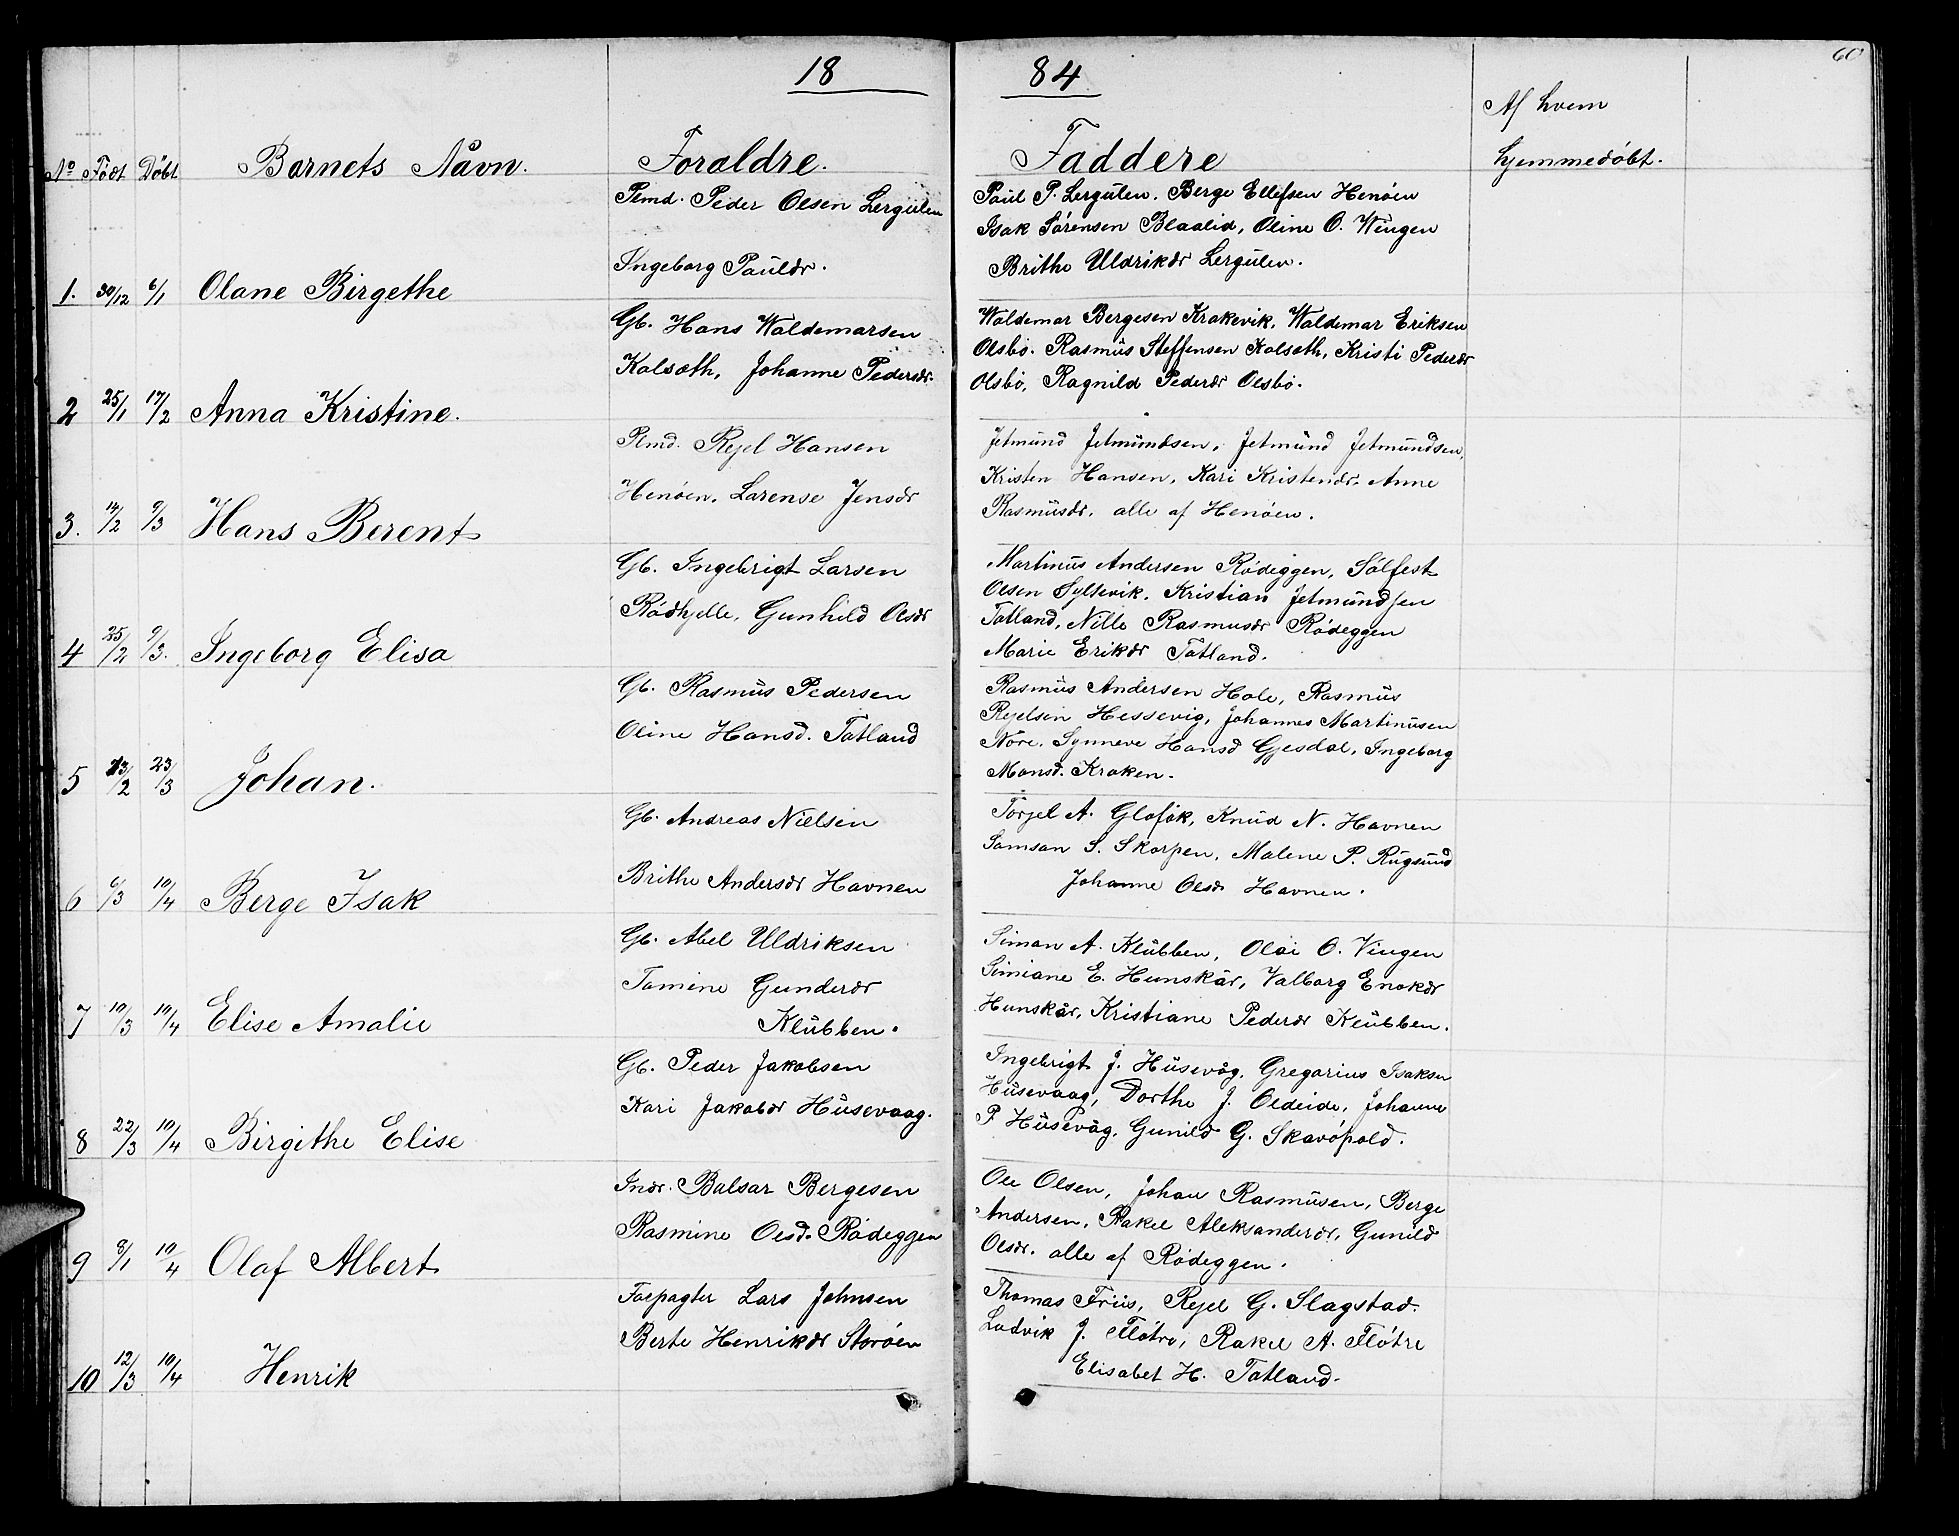 18 84
60
Af hvem
hjemmedöbt.
No Födt Döbt Barnets Navn. Foraldre. Faddere
1. 30/12 6/1 Olane Birgethe
Plmd. Peder Olsen Lergulen
Ingeborg Pauldr.
Paul P. Lergulen. Berge Ellefsen Henöen
Isak Sörensen Blaalid, Oline O. Wingen
Brithe Uldrikdr Lergulen.
2 25/1 17/2 Anna Kristine.
Gb. Hans Waldemarsen
Kalsæth, Johanne Pedersdr.
Waldemar Bergesen Krakevik, Waldemar Eriksen
Olsbö. Rasmus Steffensen Kalsæth, Kristi Pederdr
Olsbö, Ragnild Pederdr Olsbö.
3. 14/2 9/3 Hans Berent
Plmd. Rejel Hansen
Henöen, Larense Jensdr
Jetmund Jetmundsen, Jetmund Jetmundsen,
Kristen Hansen, Kari Kristendr. Anne
Rasmusdr. alle af Henöen.
4 25/2 9/3. Ingeborg Elisa
Gb. Ingebrigt Larsen
Rödhjelle, Gunhild Olsdr
Martinus Andersen Rödeggen, Sölfest
Olsen Syltevik. Kristian Jetmundsen
Totland, Nille Rasmusdr Rödeggen
Marie Erikdr Totland.
5 23/2 23/3 Johan.
Gb. Rasmus Pedersen
Oline Hansd. Totland
Rasmus Andersen Hole, Rasmus
Rejelsen Hessevig, Johannes Martinusen
Nöre. Synneve Hansd Gjesdal, Ingeborg
Monsd. Kraken.
6 6/3 10/4 Berge Isak
Gb. Andreas Nielsen
Brithe Andersdr Havnen
Torjel A. Glofåk, Knud N. Havnen
Samson S. Skorpen, Malene P. Rugsund
Johanne Olsdr Havnen.
7 10/3 10/4 Elise Amalie
Gb. Abel Uldriksen
Tomine Gunderdr
Klubben.
Simon A. Klubben, Olai O. Vingen
Simiane E. Hunskår, Valborg Enokdr
Hunskår, Kristiane Pederdr Klubben.
8 22/3 10/4 Birgithe Elise
Gb. Peder Jakobsen
Kari Jakobdr Husevaag.
Ingebrigt J. Husevåg, Gregorius Isaksen
Husevaag, Dorthe J. Oldeide, Johanne
P Husevåg, Gunild G. Skavöpold.
9 8/1 10/4 Olaf Albert
Indr. Balsar Bergesen
Rasmine Olsd. Rödeggen
Ole Olsen, Johan Rasmusen, Berge
Andersen, Rakel Aleksanderdr, Gunild
Olsdr. alle af Rödeggen.
10 12/3 10/4 Henrik
Forpagter Lars Johnsen
Berte Henrikdr Storöen
Thomas Friis, Rejel G. Slagstad.
Ludvik J. Flötre, Rakel A. Flötre
Elisabet H. Totland.